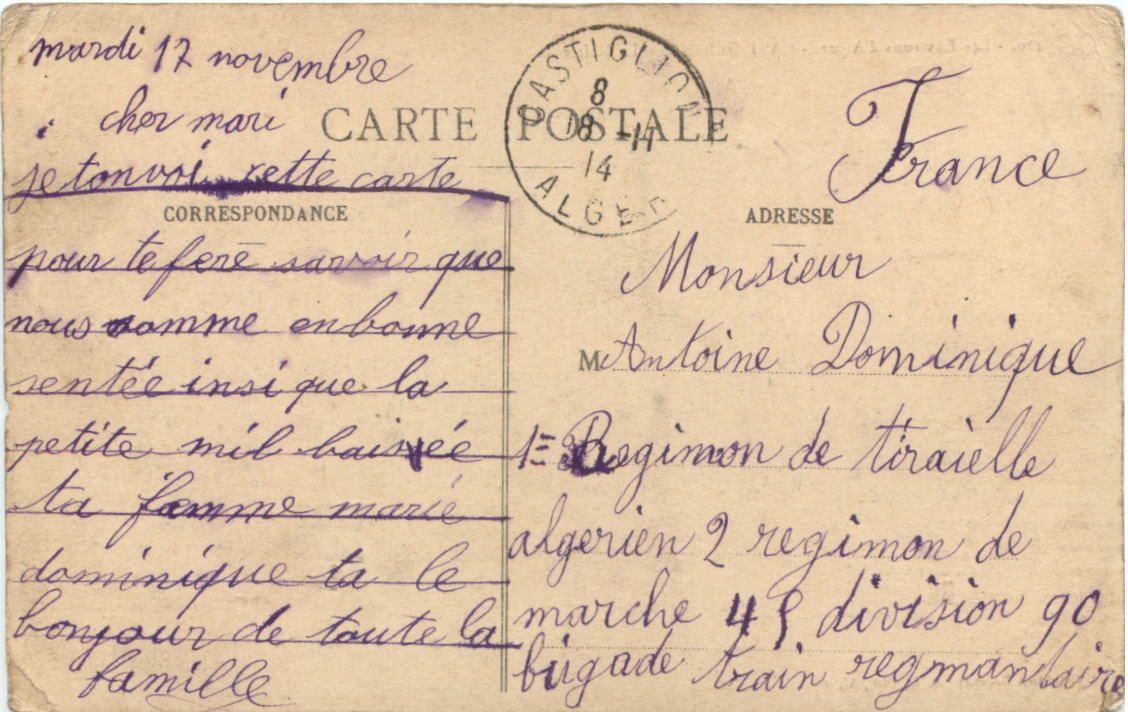 mardi 17 novembre
cher mari
CARTE POSTALE
je tonvoi cette carte
CORRESPONDANCE
pour te ferè savoir que
nous somme en bonne
sentée insi que la
petite mil baissée
ta famme marie
dominique ta le
bonjour de toute la
famille
CASTIGLIONE
8
18 -11
14
ALGER
France
ADRESSE
Monsieur
M Antoine Dominique
1= Regimon de tiraielle
algerien 2 regimon de
marche 45 division 90
brigade train regmantaire